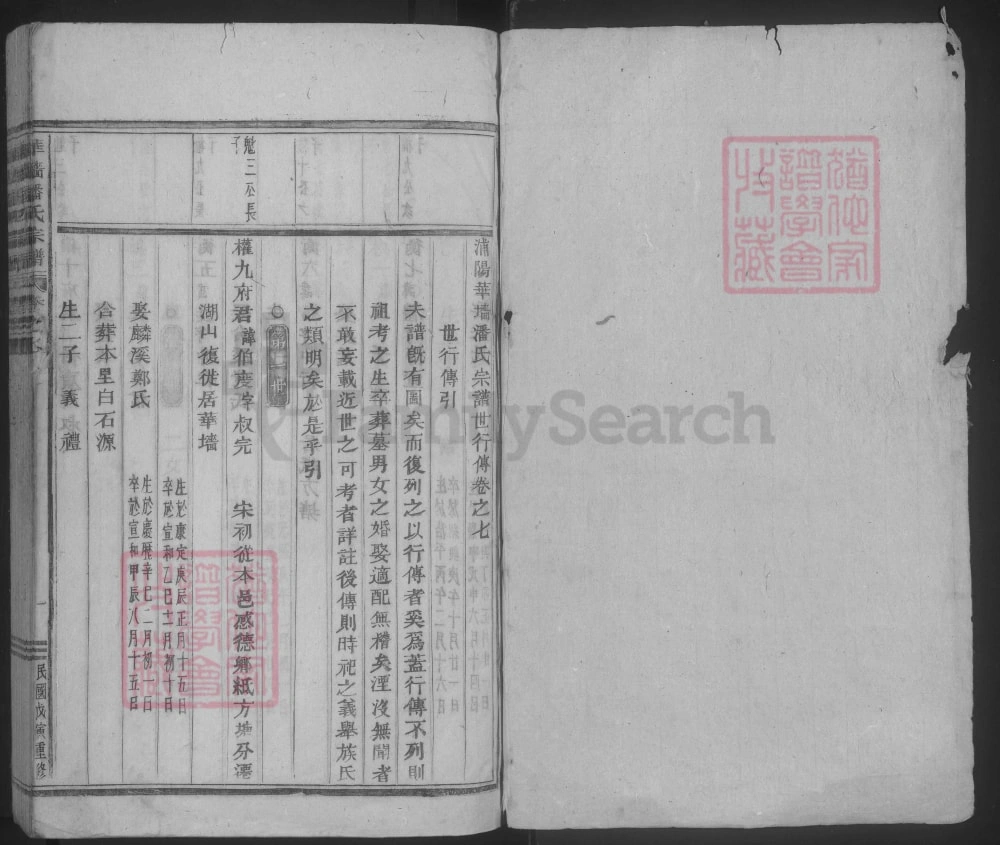 浦陽華墻潘氏宗譜世行傳卷之七
世行傳引
夫譜既有圖矣而復列之以行傳者奚爲蓋行傳不列則
祖考之生卒葬墓男女之婚娶適配無稽矣湮沒無聞者
不敢妄載近世之可考者詳註後傳則時祀之義舉族氏
之類明矣於是乎引
第一世
魁三公長子
權九府君 諱伯度字叔完 宋初從本邑感德鄉紙方地分遷
湖山復徙居華墻
生於康定庚辰正月十五日
卒於宣和乙巳十二月初十日
娶麟溪鄭氏
生於慶曆辛巳二月初一日
卒於宣和甲辰八月十五日
合葬本里白石源
生二子 義 禮
華墻潘氏宗譜
卷之七
一
民國戊寅重修
譜學會
收藏
FamilySearch